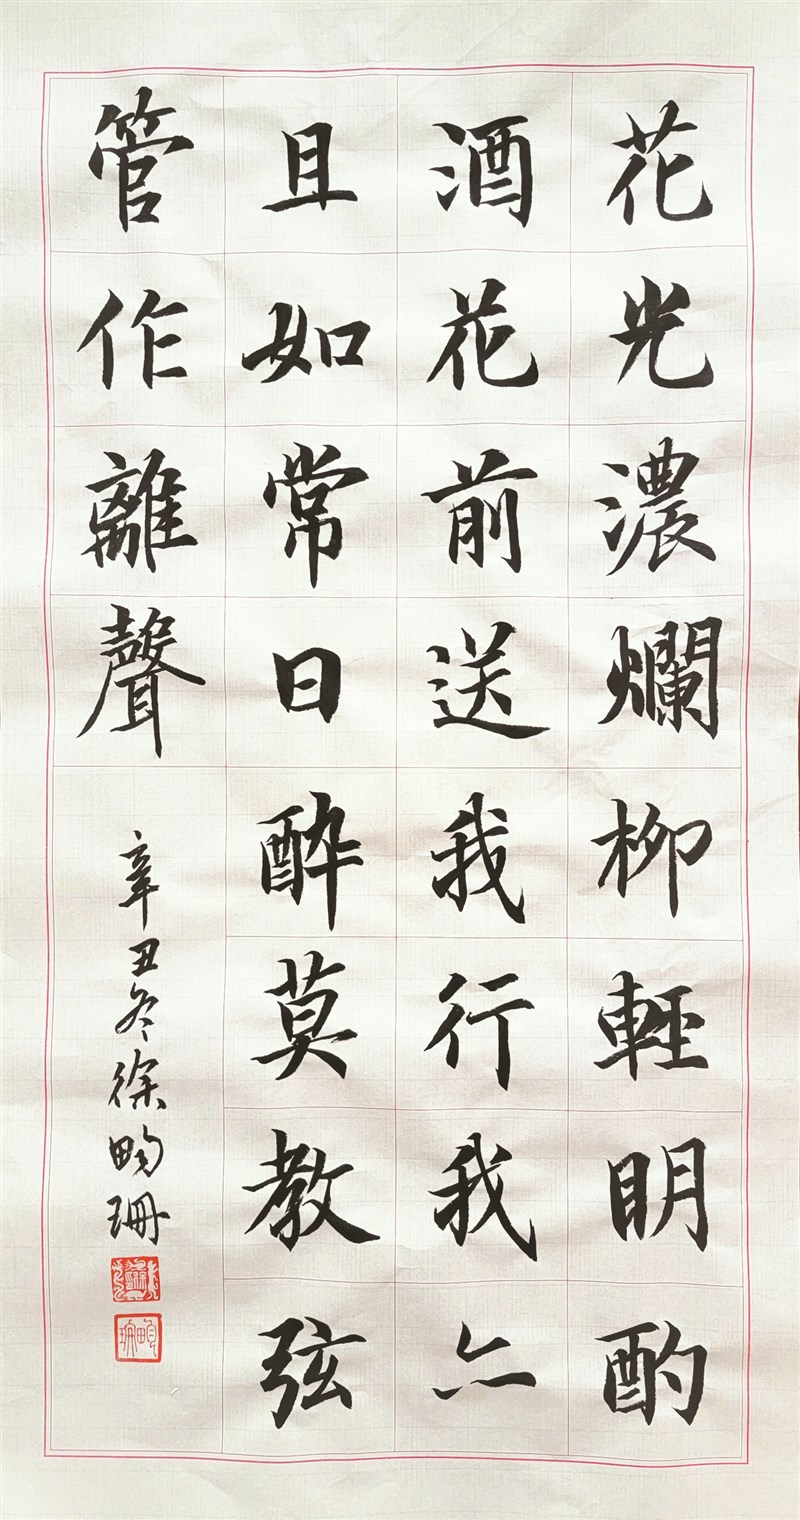 花光濃爛柳輕明酌
酒花前送我行我亦
且如常日醉莫教弦
管作離聲
辛丑冬徐暢珊